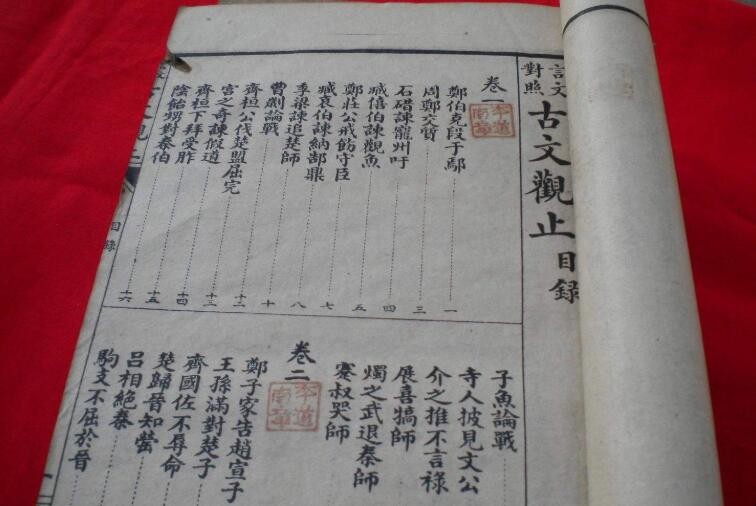 言文
對照
古文觀止目錄
卷一
鄭伯克段于鄢 一
周鄭交質 三
石碏諫寵州吁 四
臧僖伯諫觀魚 五
鄭莊公戒飭守臣 七
臧哀伯諫納郜鼎 八
季梁諫追楚師 十
曹劌論戰 十二
齊桓公伐楚盟屈完 十三
宮之奇諫假道 十四
齊桓下拜受胙 十五
陰飴甥對秦伯 十六
子魚論戰
寺人披見文公
介之推不言祿
展喜犒師
燭之武退秦師
蹇叔哭師
卷二
鄭子家告趙宣子
王孫滿對楚子
齊國佐不辱命
楚歸晉知罃
呂相絕秦
駒支不屈於晉
目錄